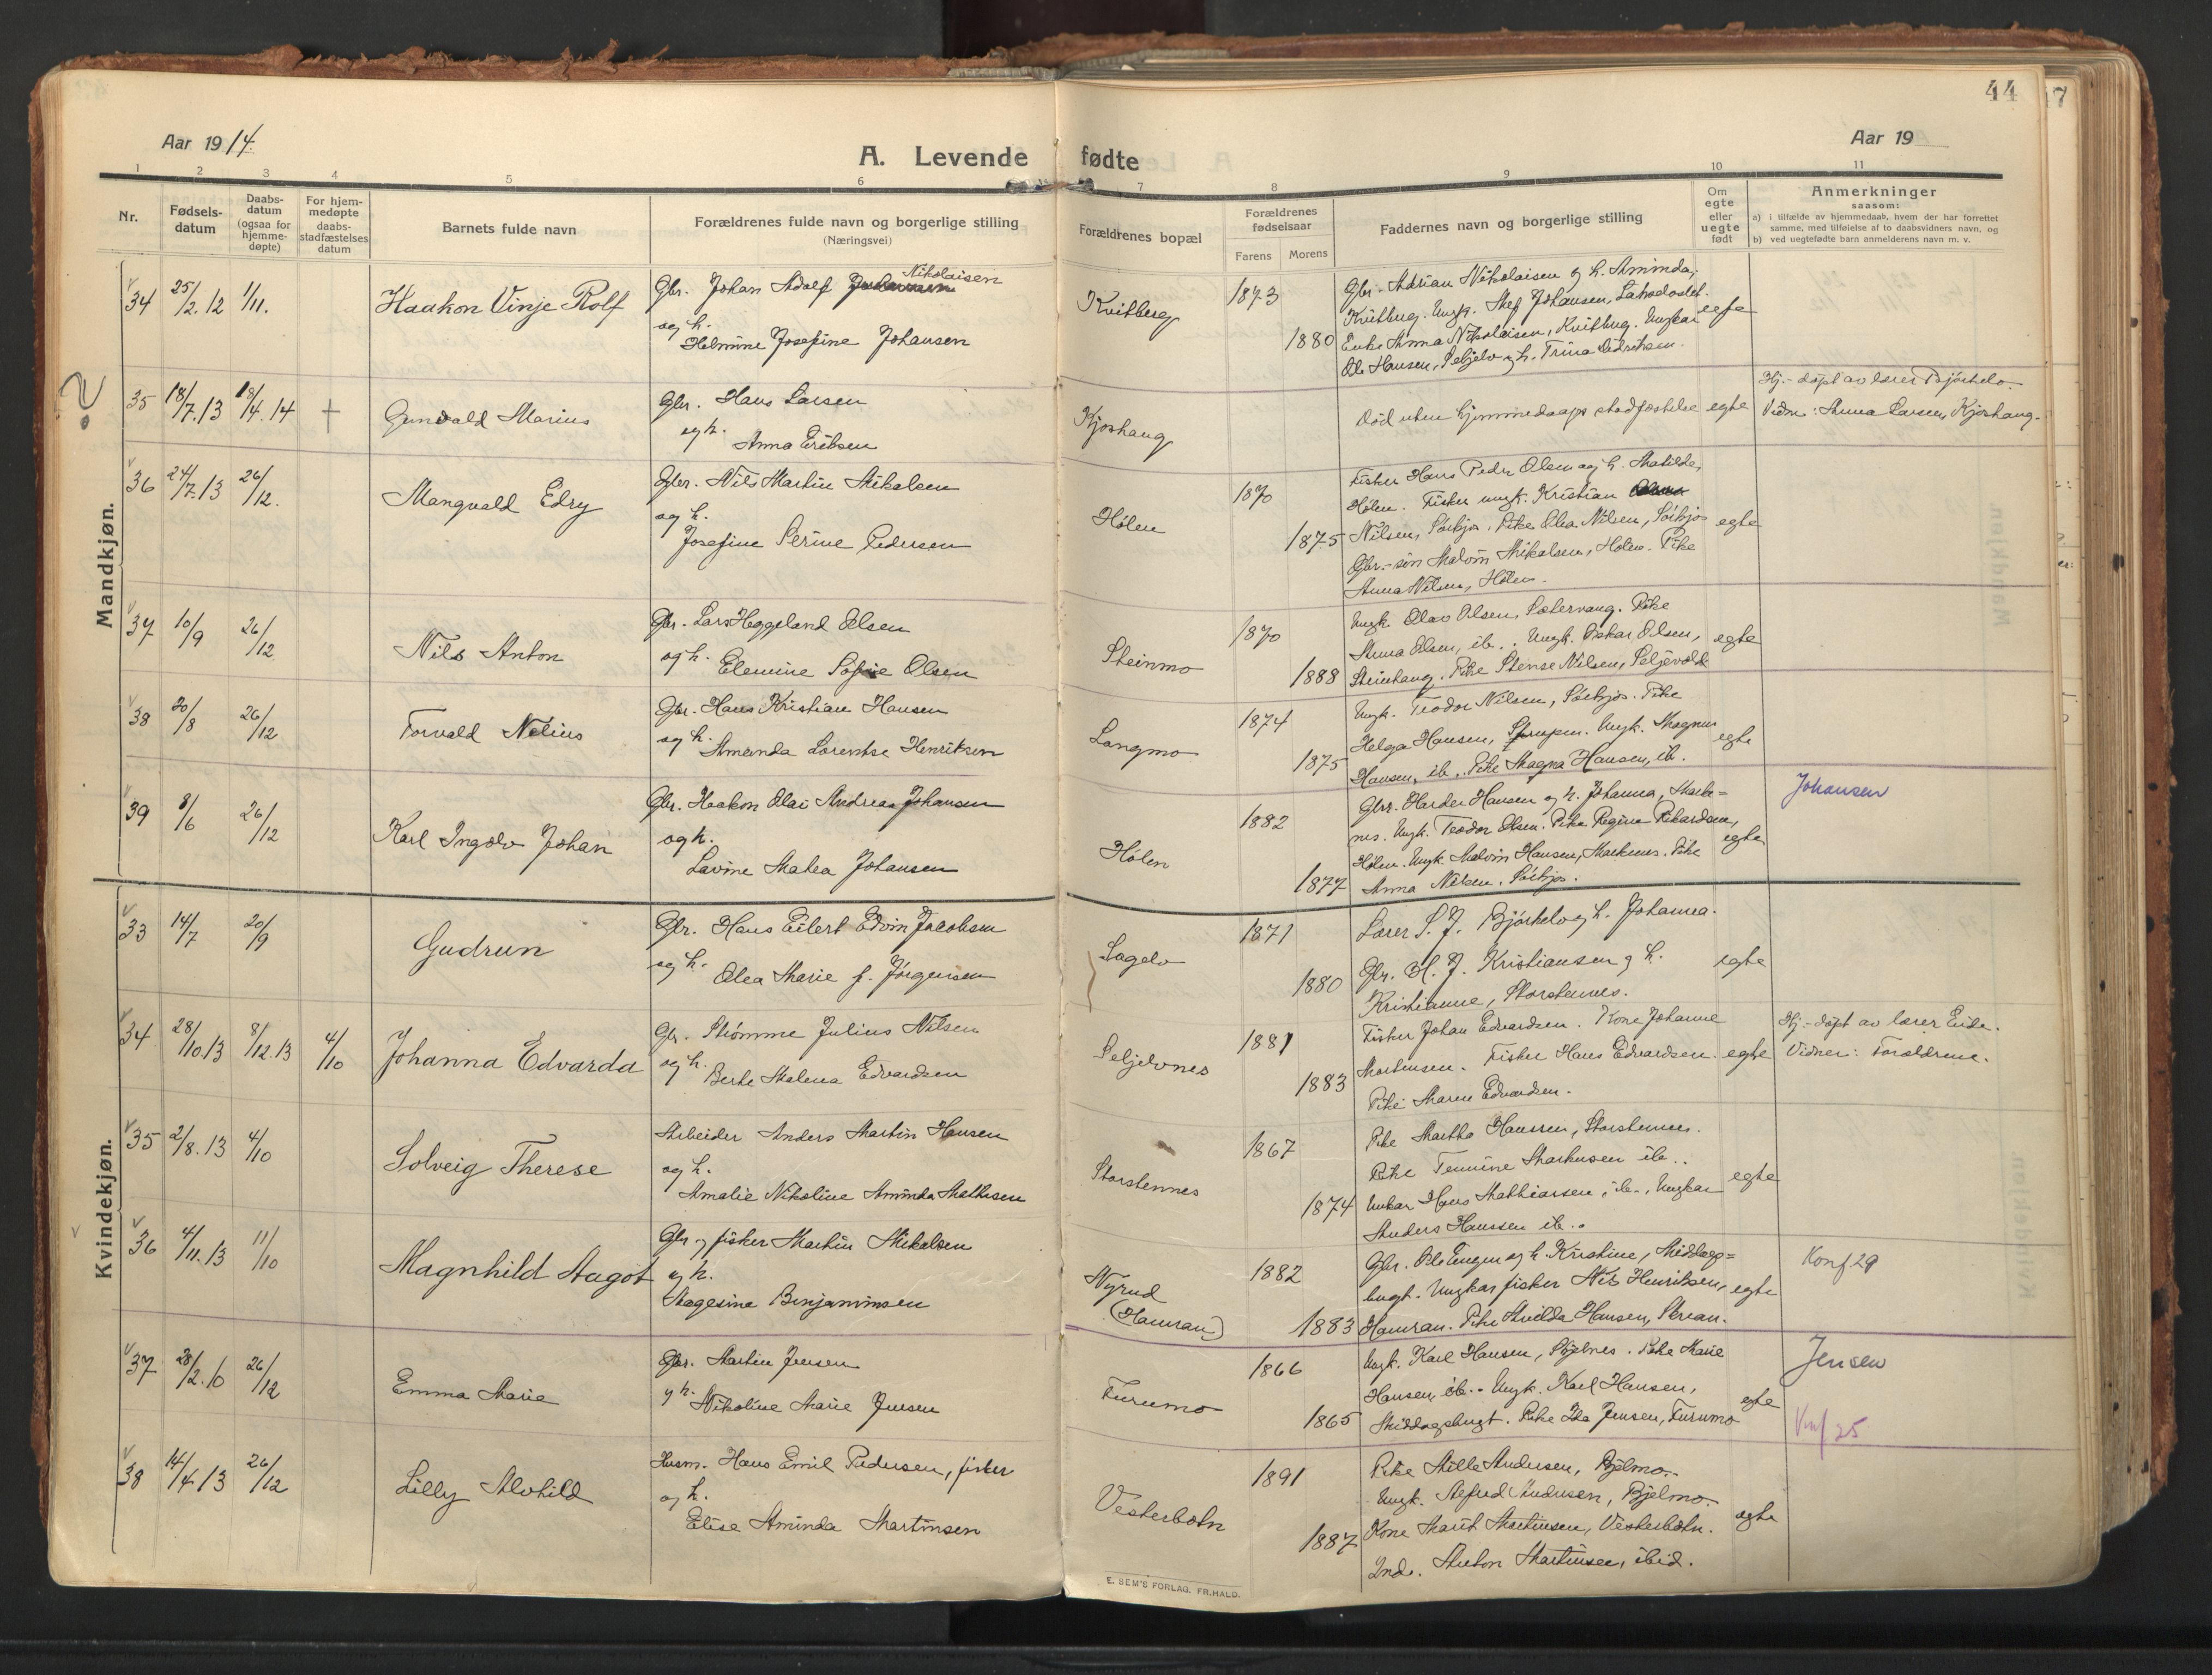 44
Aar 1914.
A. Levende fødte
Aar 19
1 2 3 4 5 6 7 8 9 10 11
Nr.
Fødsels-
datum
Daabs-
datum
(ogsaa for
hjemme-
døpte)
For hjem-
medøpte
daabs-
stadfæstelses
datum
Barnets fulde navn
Forældrenes fulde navn og borgerlige stilling
(Næringsvei)
Forældrenes bopæl
Forældrenes
fødselsaar
Farens Morens
Faddernes navn og borgerlige stilling
Om
egte
eller
uegte
født
Anmerkninger
saasom:
a) i tilfælde av hjemmedaab, hvem der har forrettet
samme, med tilføielse af to daabsvidners navn, og
b) ved uegtefødte barn anmelderens navn m. v.
Mandkjøn.
34 25/2.12 1/11. Haakon Vinje Rolf
Gbr. Johan Adolf Nikolaisen
og h.
Helmine Josefine Johansen
Kvitberg 1873 1880
Gbr. Adrian Nikolaisen og h. Aminda,
Kvitberg. Ungk. Johansen,
Enke Anna Nikolaisen, Kvitberg. Ungkar
Ole Hansen, Seljelv og h. Trina
egte
35 18/7.13 18/4.14 + Gunvald Marius
Gbr. Hans Larsen
og h.
Anna Eriksen
Kjoshaug
Død uten hjemmedaaps stadfæstelse egte
Hj.-døpt av lærer Bjørkelo.
Vidne: Anna Larsen, Kjoshaug.
36 24/7.13 26/12. Mangvald Edry
Gbr. Nils Martin Mikalsen
og h.
Josefine Serine Pedersen
Holen 1870 1875
Fisker Hans Peder Olsen og h. Matilde,
Holen. Fisker ungk. Kristian
Nilsen, Sørkjos. Pike Olea Nilsen, Sørkjos egte
Gbr.-søn Malvin Mikalsen, Holen. Pike
Anna Nilsen, Holen.
37 10/9 26/12 Nils Anton
Gbr. Lars Heggeland Olsen
og h.
Elemine Sofie Olsen
Steinmo 1870 1888
Ungk. Olav Olsen, Sætervang. Pike
Anna Olsen, ib. Ungk. Oskar Olsen, egte
Steinhaug. Pike Stense Nilsen,
38 20/8 26/12 Torvald Nelius
Gbr. Hans Kristian Hansen
og h.
Amanda Lorentse Henriksen
Langmo 1874 1875
Ungk. Teodor Nilsen, Sørkjos. Pike
Helga Hansen, Ungk. Magnus egte
Hansen, ib. Pike Magna Hansen, ib.
39 8/6 26/12 Karl Ingolv Johan
Gbr. Haakon Olai Andreas Johansen
og h.
Lavine Malea Johansen
Holen 1882 1877
Gbr. Harder Hansen og h. Johanna, Marke-
nes. Ungk. Teodor Olsen. Pike Regine Rikardsen,
Holen. Ungk. Malvin Hansen, Markenes. Pike egte
Anna Nilsen. Sørkjos.
Johansen
Kvindekjøn.
33 14/7 20/9 Gudrun
Gbr. Hans Eilert Edvin Jacobsen
og h.
Olea Marie f. Jørgensen
Sagelv 1871 1880
Lærer S. J. Bjørkelo og h. Johanna.
Gbr. H. J. Kristiansen og h. egte
Kristianne, Storstennes.
34 28/10.13 8/12.13 4/10 Johanna Edvarda
Gbr. Strømme Julius Nilsen
og h.
Berte Malena Edvardsen
Seljelvnes 1881 1883
Fisker Johan Edvardsen. Kone Johanne
Martinsen. Fisker Hans Edvardsen. egte
Pike Maren Edvardsen.
Hj.-døpt av lærer Eide.
Vidner: Forældrene.
35 2/8.13 4/10 Solveig Therese
Arbeider Anders Martin Hansen
og h.
Amalie Nikoline Aminda Mathisen
Storstennes 1867 1874
Pike Martha Hanssen, Storstennes.
Pike Temine Markusen ib..
Unkar Hans Mathiassen, ib., Ungkar egte
Anders Hanssen ib..
36 4/11.13 11/10 Magnhild Aagot
Gbr og fisker Martin Mikalsen
og h.
Aagesine Benjaminsen
Nyrud
(Hamran) 1882 1883
Gbr. Ole Eugen og h. Kristine, Middags-
bugt. Ungkar fisker Nils Henriksen, egte
Hamran. Pike Alvilda Hansen,
Konf 29
37 28/2.10 26/12 Emma Marie
Gbr. Martin Jensen
og h.
Nikoline Marie Jensen
Furumo 1866 1865
Ungk. Karl Hansen, Pike Marie
Hansen, ib.. Ungk. Karl Hansen, egte
Middagsbugt. Pike Ida Jensen, Furumo
Jensen
Konf 25
38 14/4.13 26/12 Lilly Alvhild
Husm. Hans Emil Pedersen, fisker
og h.
Elise Aminda Martinsen
Vesterbotn 1891 1887
Pike Mille Andersen, Bjelmo.
Ungk. Alfred Andersen, Bjelmo.
Kone Marit Martinsen, Vesterbotn. egte
Ind. Anton Martinsen, ibid.
E. SEM'S FORLAG. FR.HALD.